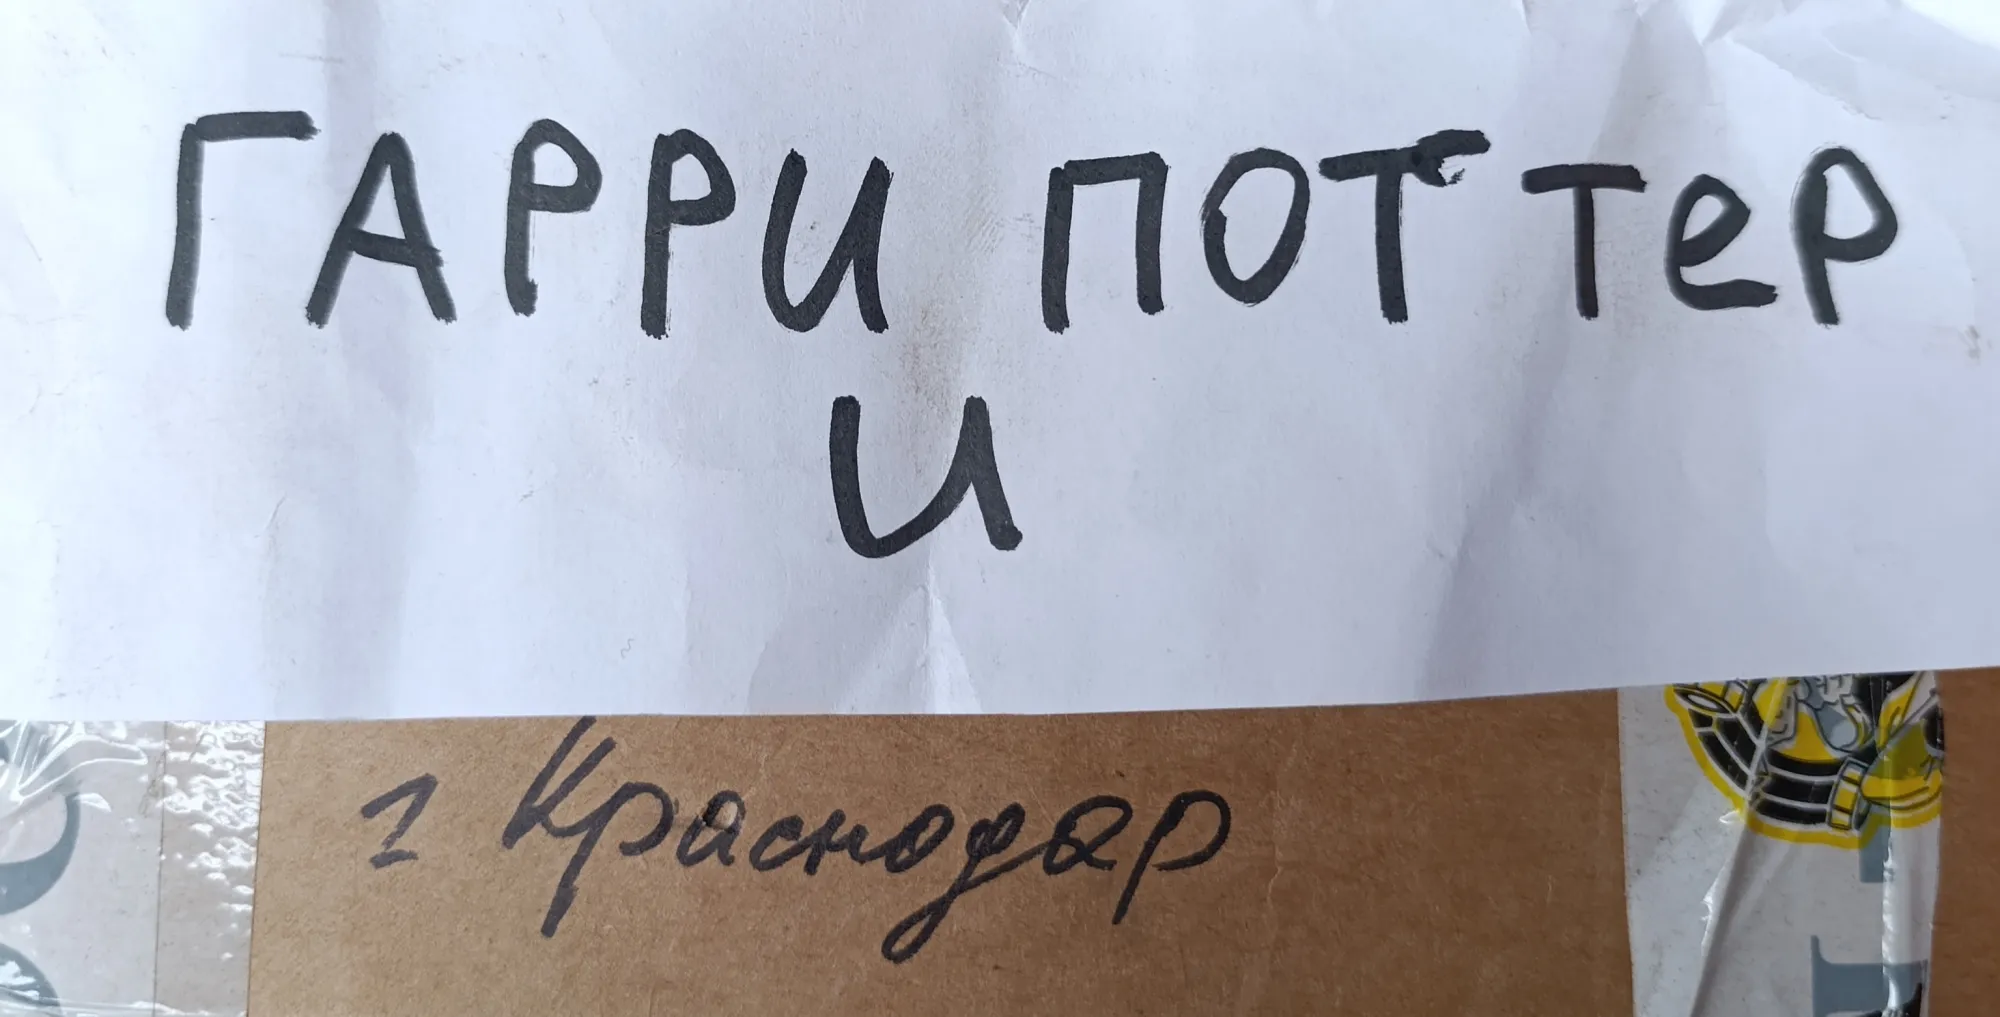 ГАРРИ ПОТТеР
И
г Краснодар